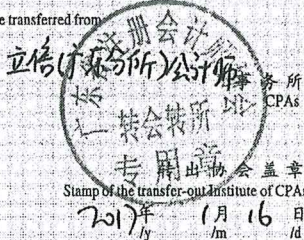 e transferred from
立信(广东分所)会计师
事务所
CPAs
广东省注册会计师协会
转会转所
专用章
转出协会盖章
Stamp of the transfer-out Institute of CPAs
2017年 1月 16日
/y /m /d